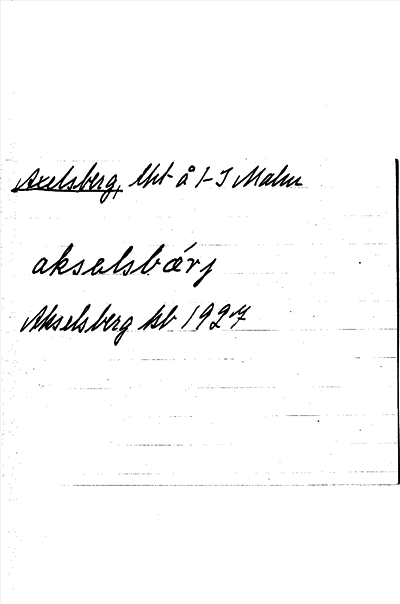 Axelsberg, lht å 1-3 Malm
aksəlsbærj
Akselsberg kb 1927